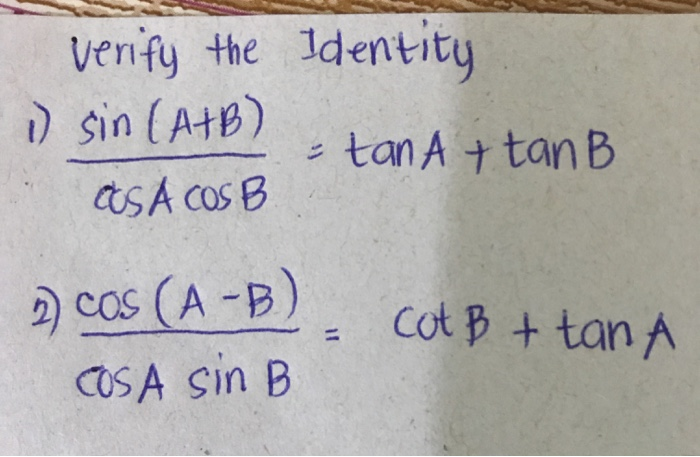 Verify the Identity
1) sin (A+B) / cosA cosB = tan A + tan B
2) cos (A - B) / cosA sin B = cot B + tan A